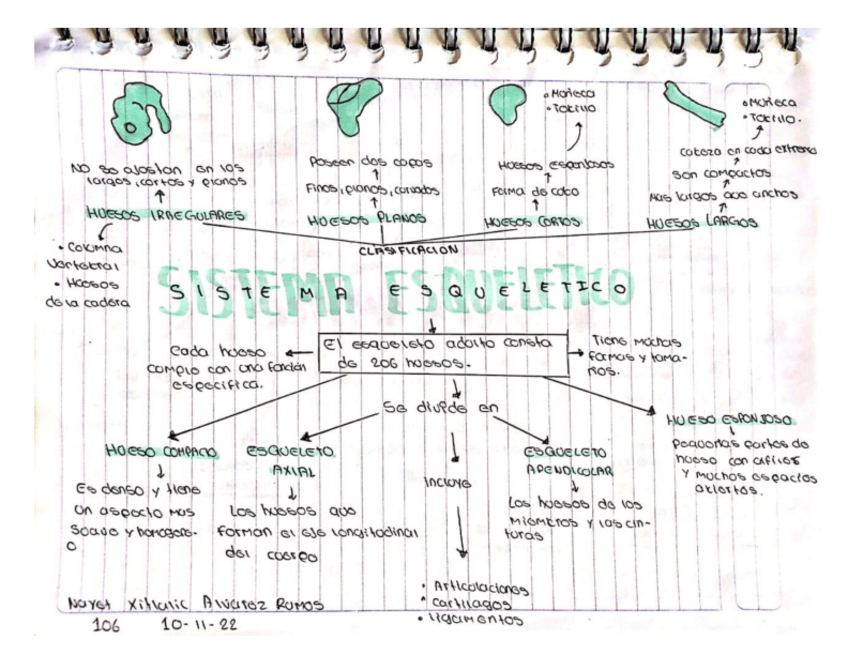 • Muñeca
• Tobillo
• Muñeca
• Tobillo.
No se ajustan en los
largos, cortos y planos
HUESOS IRREGULARES
• Columna
Vertebral
• Huesos
de la cadera
Poseen dos capas
Finos, planos, curvados
HUESOS PLANOS
Huesos esponjosos
Forma de cubo
HUESOS CORTOS
cabeza en cada extremo
son compactos
Mas largos que anchos
HUESOS LARGOS
CLASIFICACION
SISTEMA ESQUELETICO
El esqueleto adulto consta
de 206 huesos.
Cada hueso
cumple con una función
especifica.
Tiene muchas
formas y tama-
ños.
Se divide en
HUESO COMPACTO
Es denso y tiene
un aspecto mas
suave y homogene-
o
ESQUELETO
AXIAL
Los huesos que
forman el eje longitudinal
del cuerpo
Incluye
• Articulaciones
• cartilagos
• ligamentos
ESQUELETO
APENDICULAR
Los huesos de los
miembros y las cin-
turas
HUESO ESPONJOSO
pequeñas partes de
hueso con
y muchos espacios
abiertos.
Alvarez Ramos
106 10-11-22